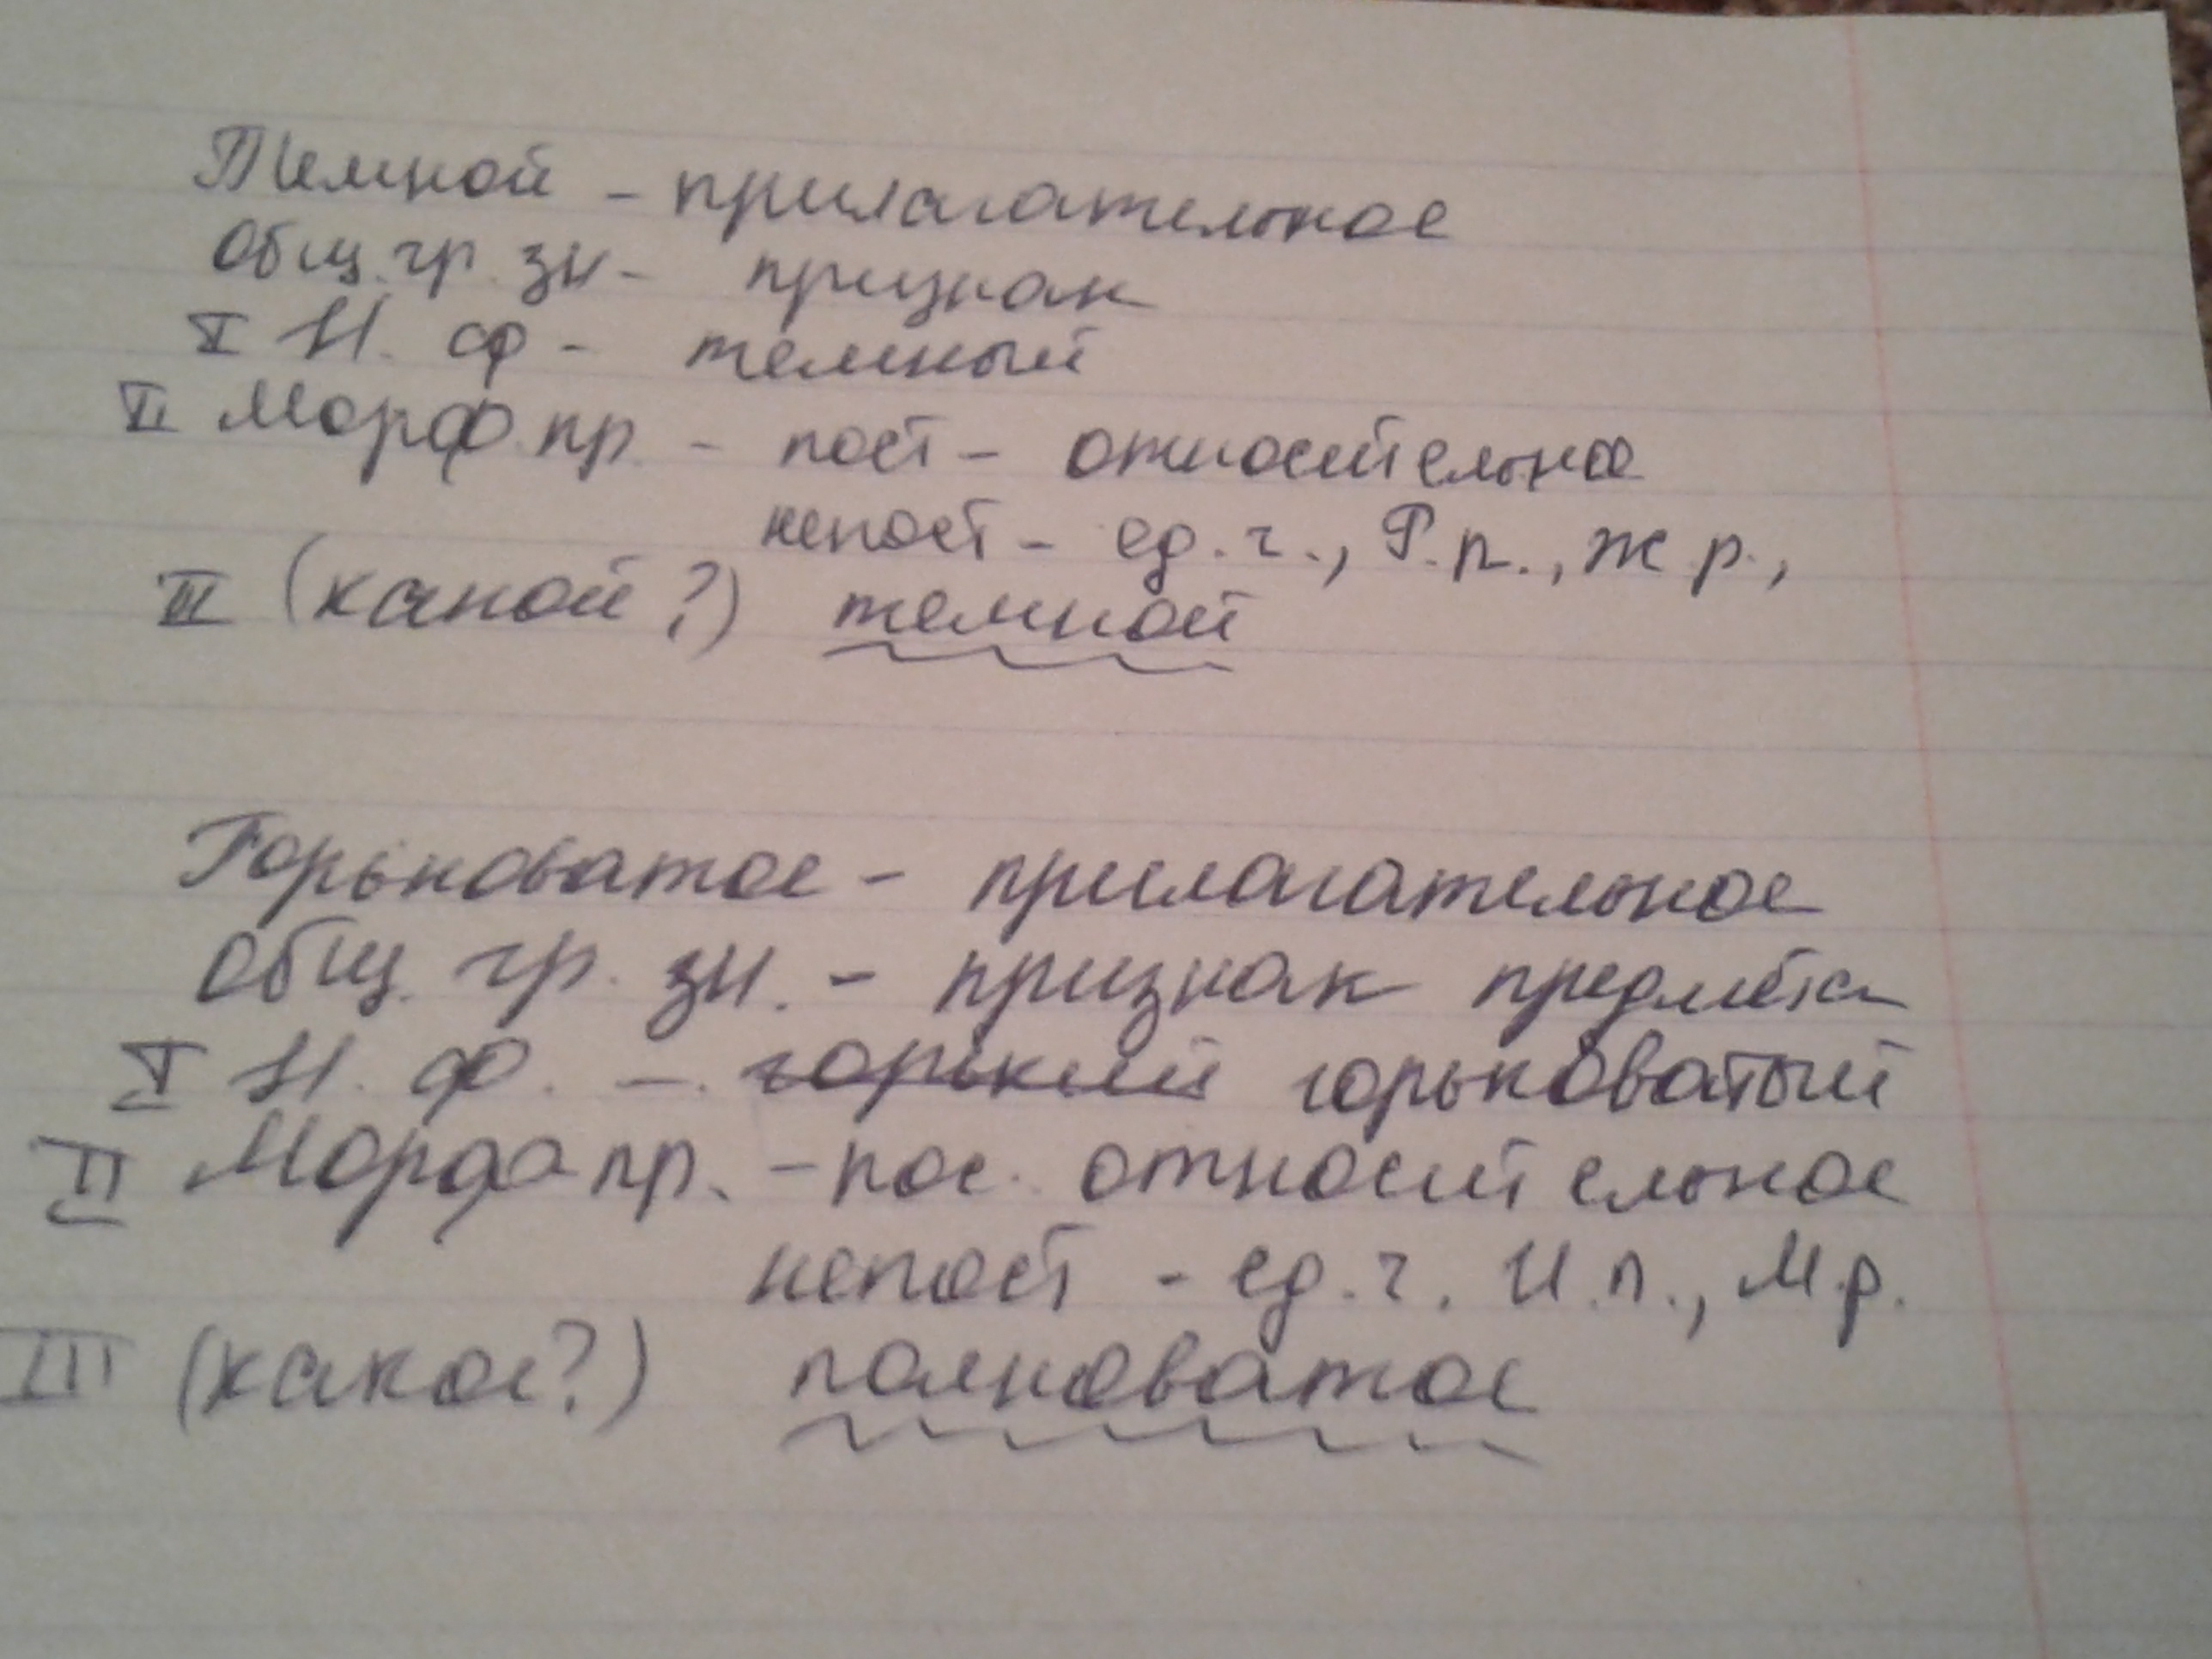 Темной - прилагательное
Общ. гр. зн - признак
I Н. ф - темный
II Морф. пр. - пост - относительное
непост - ед. ч., Р. п., ж. р.,
III (какой?) темной
Горьковатое - прилагательное
Общ. гр. зн. - признак предмета
I Н. ф. - горький горьковатый
II Морф пр. - пос. относительное
непост - ед. ч. И. п., М. р.
III (какое?) полноватое